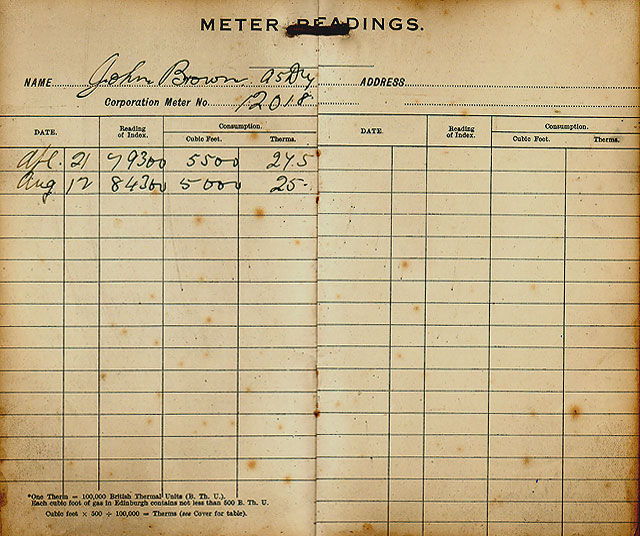 METER READINGS.
NAME John Brown ADDRESS
Corporation Meter No. 12018
DATE. Reading of Index. Consumption. Cubic Feet. Therms. DATE. Reading of Index. Consumption. Cubic Feet. Therms.
21 79300 5500 275
Aug 12 84300 5000 25-
*One Therm = 100,000 British Thermal Units (B. Th. U.).
Each cubic foot of gas in Edinburgh contains not less than 500 B. Th. U.
Cubic feet × 500 ÷ 100,000 = Therms (see Cover for table).